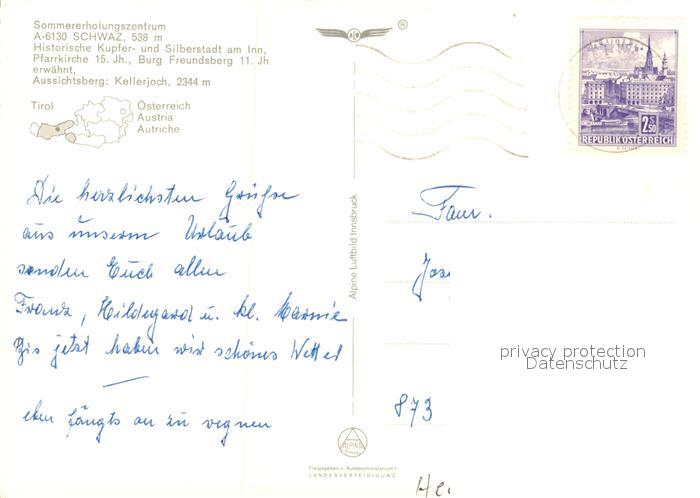 Sommererholungszentrum
A-6130 SCHWAZ, 538 m
Historische Kupfer- und Silberstadt am Inn,
Pfarrkirche 15. Jh., Burg Freundsberg 11. Jh.
erwähnt,
Aussichtsberg: Kellerjoch, 2344 m
Tirol
Österreich
Austria
Autriche
®
2.50
REPUBLIK ÖSTERREICH
Die herzlichsten Grüße
aus unserm Urlaub
senden Euch allen
Franz, Hildegard u. kl. Marnie
Bis jetzt haben wir schönes Wetter
—
eben fängts an zu regnen
Alpine Luftbild Innsbruck
Fam.
Jos
873
He
ALPINE
Freigegeben v. Bundesministerium f.
LANDESVERTEIDIGUNG
privacy protection
Datenschutz